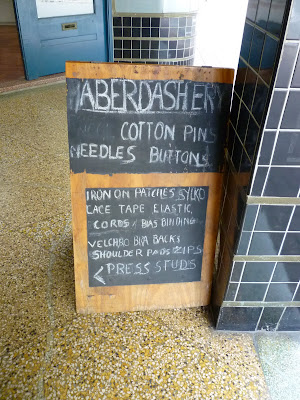 HABERDASHERY
COTTON PINS
NEEDLES BUTTONS
IRON ON PATCHES SYLKO
LACE TAPE ELASTIC,
CORDS BIAS BINDING
VELCHRO BRA BACKS
SHOULDER PADS ZIPS
PRESS STUDS